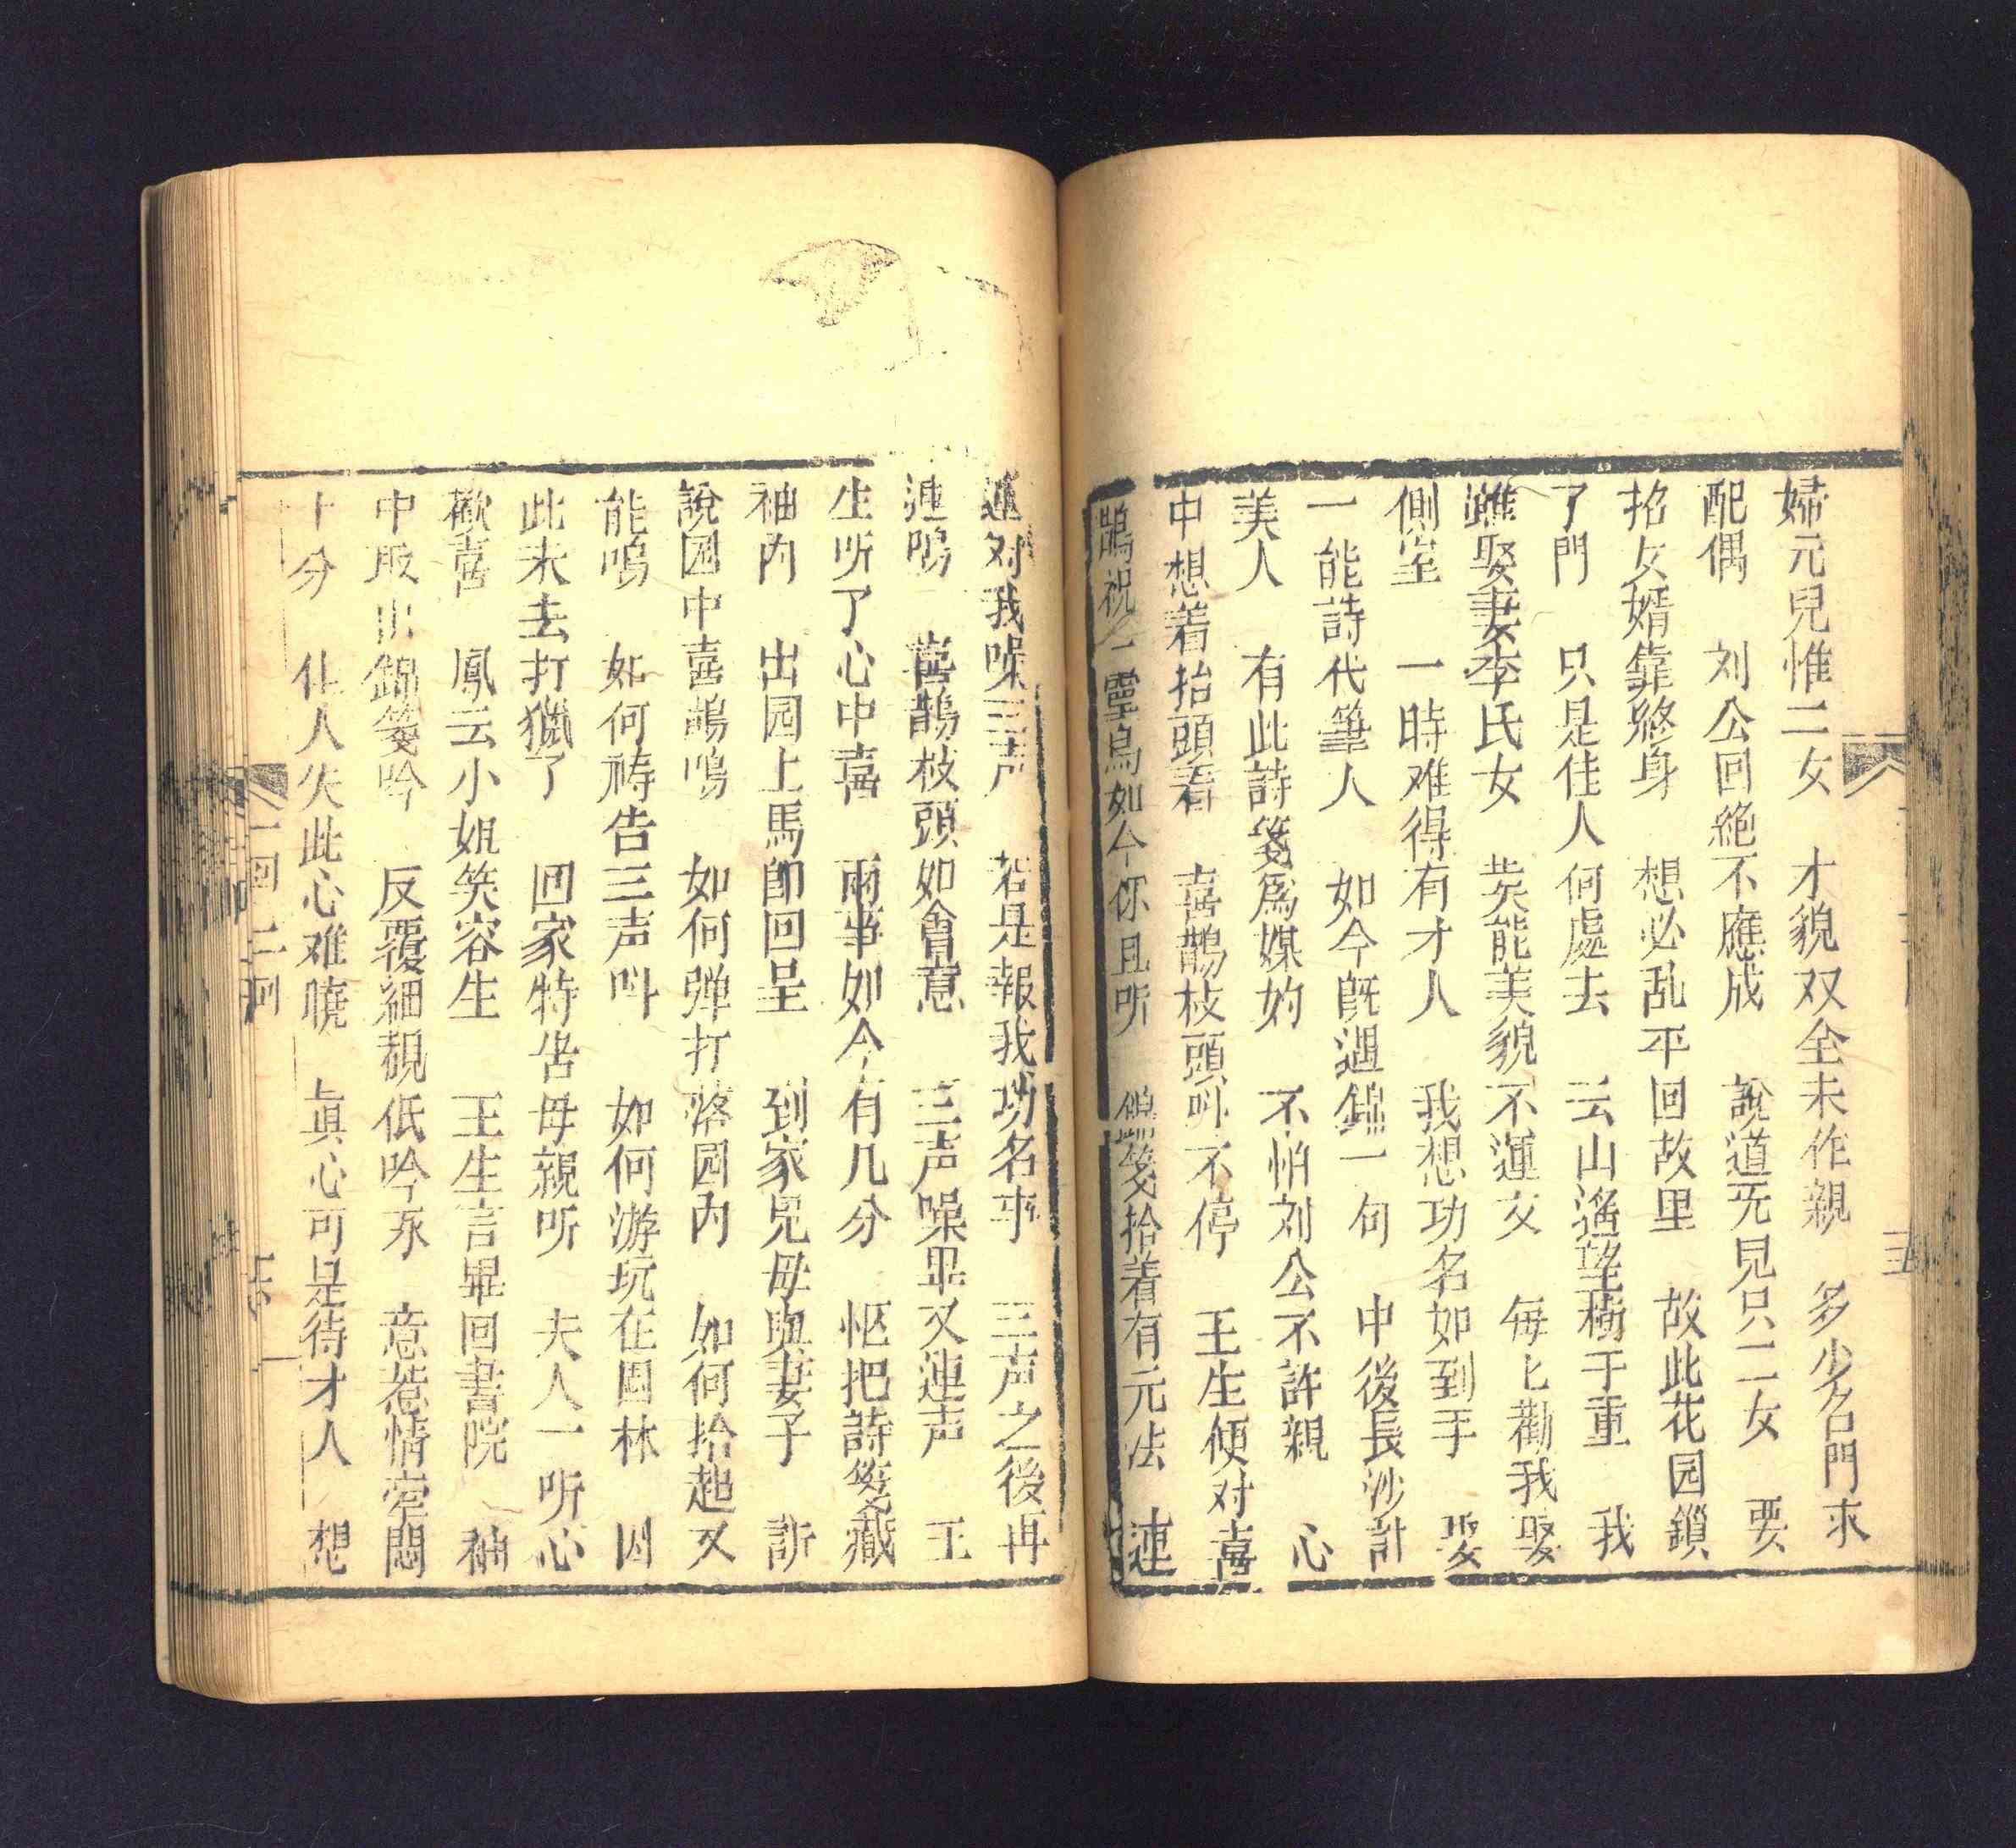 婦元兒惟二女　才貌双全未作親　多少名門求
配偶　刘公回絶不應成　說道旡兒只二女　要
招女婿靠終身　想必乱平回故里　故此花园鎖
了門　只是佳人何處去　云山遙望樹于重　我
雖娶妻李氏女　柴能美貌不運文　每匕勸我娶
側室　一時难得有才人　我想功名如到手　娶
一能詩代筆人　如今旣遇錦一句　中後長沙計
美人　有此詩箋爲媒妁　不怕刘公不許親　心
中想着抬頭看　喜鵲枝頭叫不停　王生便对喜
鵲祝　靈鳥如今你且听　錦箋拾着有元法　連
連对我噪三声　若是報我功名事　三声之後再
連鳴　喜鵲枝頭如會意　三声噪畢又連声　王
生听了心中喜　兩事如今有几分　怄把詩箋藏
袖內　出园上馬卽回呈　到家見母與妻子　訴
說园中喜鵲鳴　如何弹打落园內　如何拾起又
能鳴　如何祷告三声叫　如何游玩在園林　因
此未去打獵了　回家特告母親听　夫人一听心
歡喜　鳳云小姐笑容生　王生言畢回書院　袖
中取出錦箋吟　反覆細覩低吟永　意惹情牵悶
十分　仕人失此心难曉　眞心可是待才人　想
一回二回